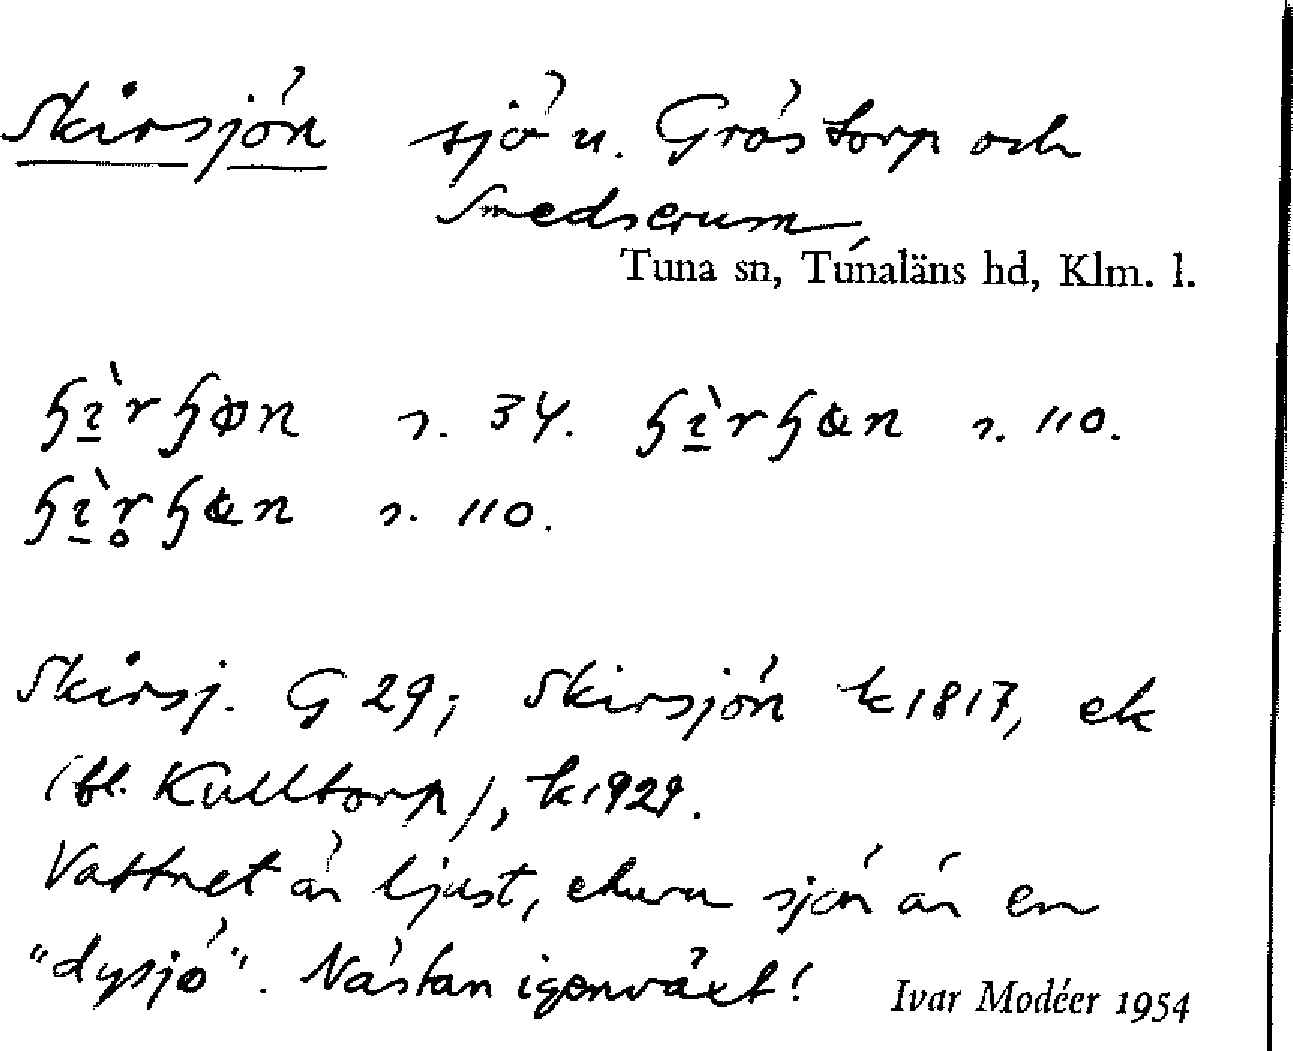 Skirsjön sjö u. Gröstorp och
Smedserum,
Tuna sn, Tunaläns hd, Klm. l.
s. 34. s. 110.
s. 110.
Skirsj. G 29; Skirsjön k 1817, ek
(bl. Kulltorp), k 1929.
Vattnet är ljust, ehuru sjön är en
"dysjö". Nästan igenväxt!
Ivar Modéer 1954